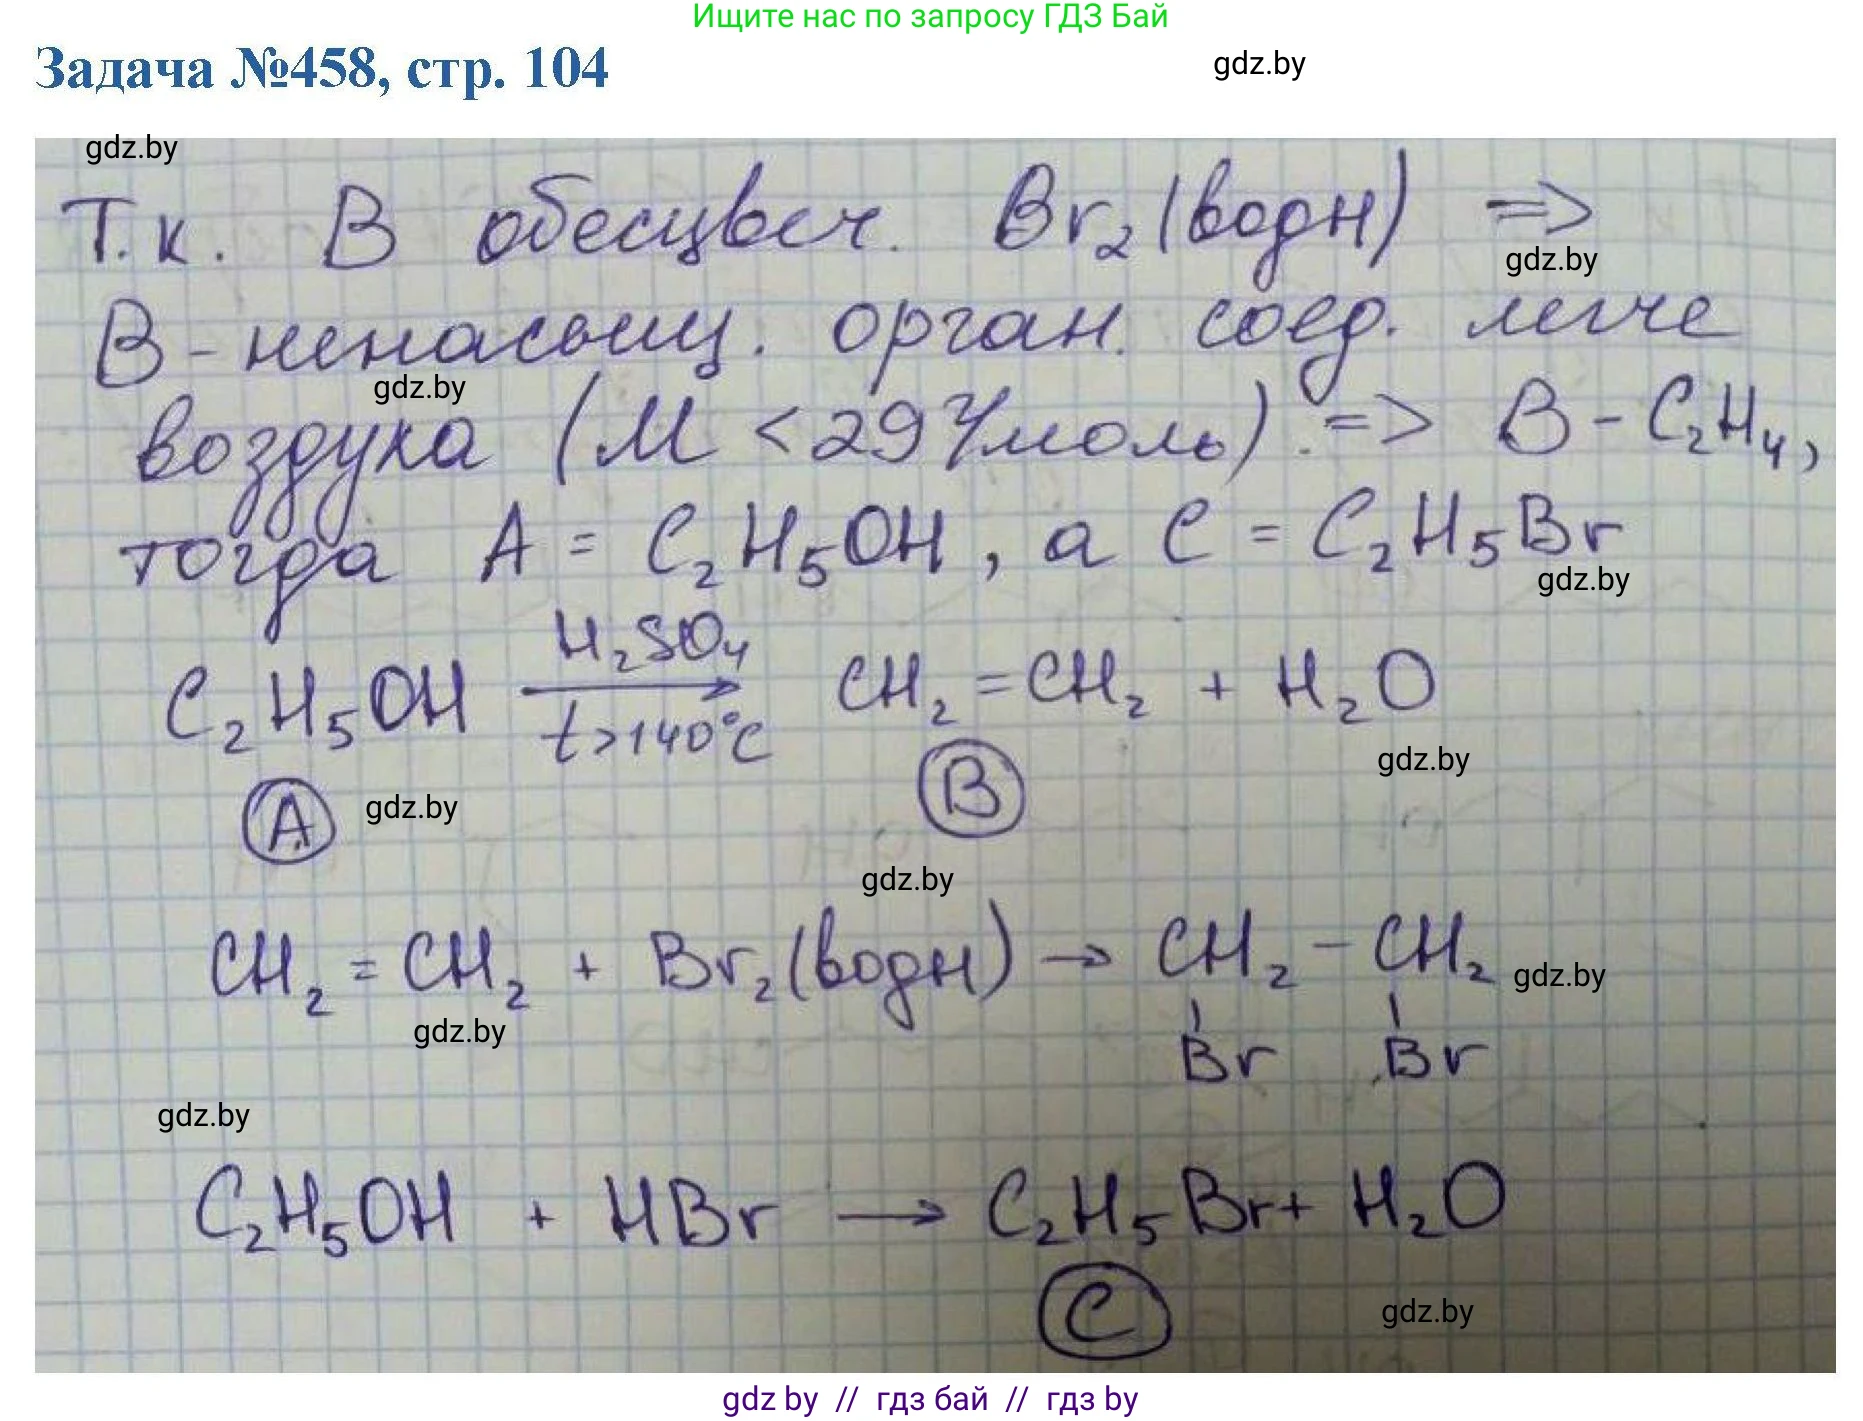 Ищите нас по запросу ГДЗ Бай
Задача №458, стр. 104
gdz.by
gdz.by
Т.к. В обесцвеч. Br₂(водн) =>
gdz.by
В - ненасыщ. орган. соед. легче
gdz.by
воздуха (М < 29 г/моль) => В - C₂H₄,
тогда А = C₂H₅OH, а С = C₂H₅Br
gdz.by
C₂H₅OH H₂SO₄ → t>140°C CH₂=CH₂ + H₂O
gdz.by
A gdz.by B
gdz.by
CH₂=CH₂ + Br₂(водн) → CH₂-CH₂
gdz.by
gdz.by
Br Br
gdz.by
C₂H₅OH + HBr → C₂H₅Br + H₂O
C
gdz.by
gdz by // гдз бай // гдз by